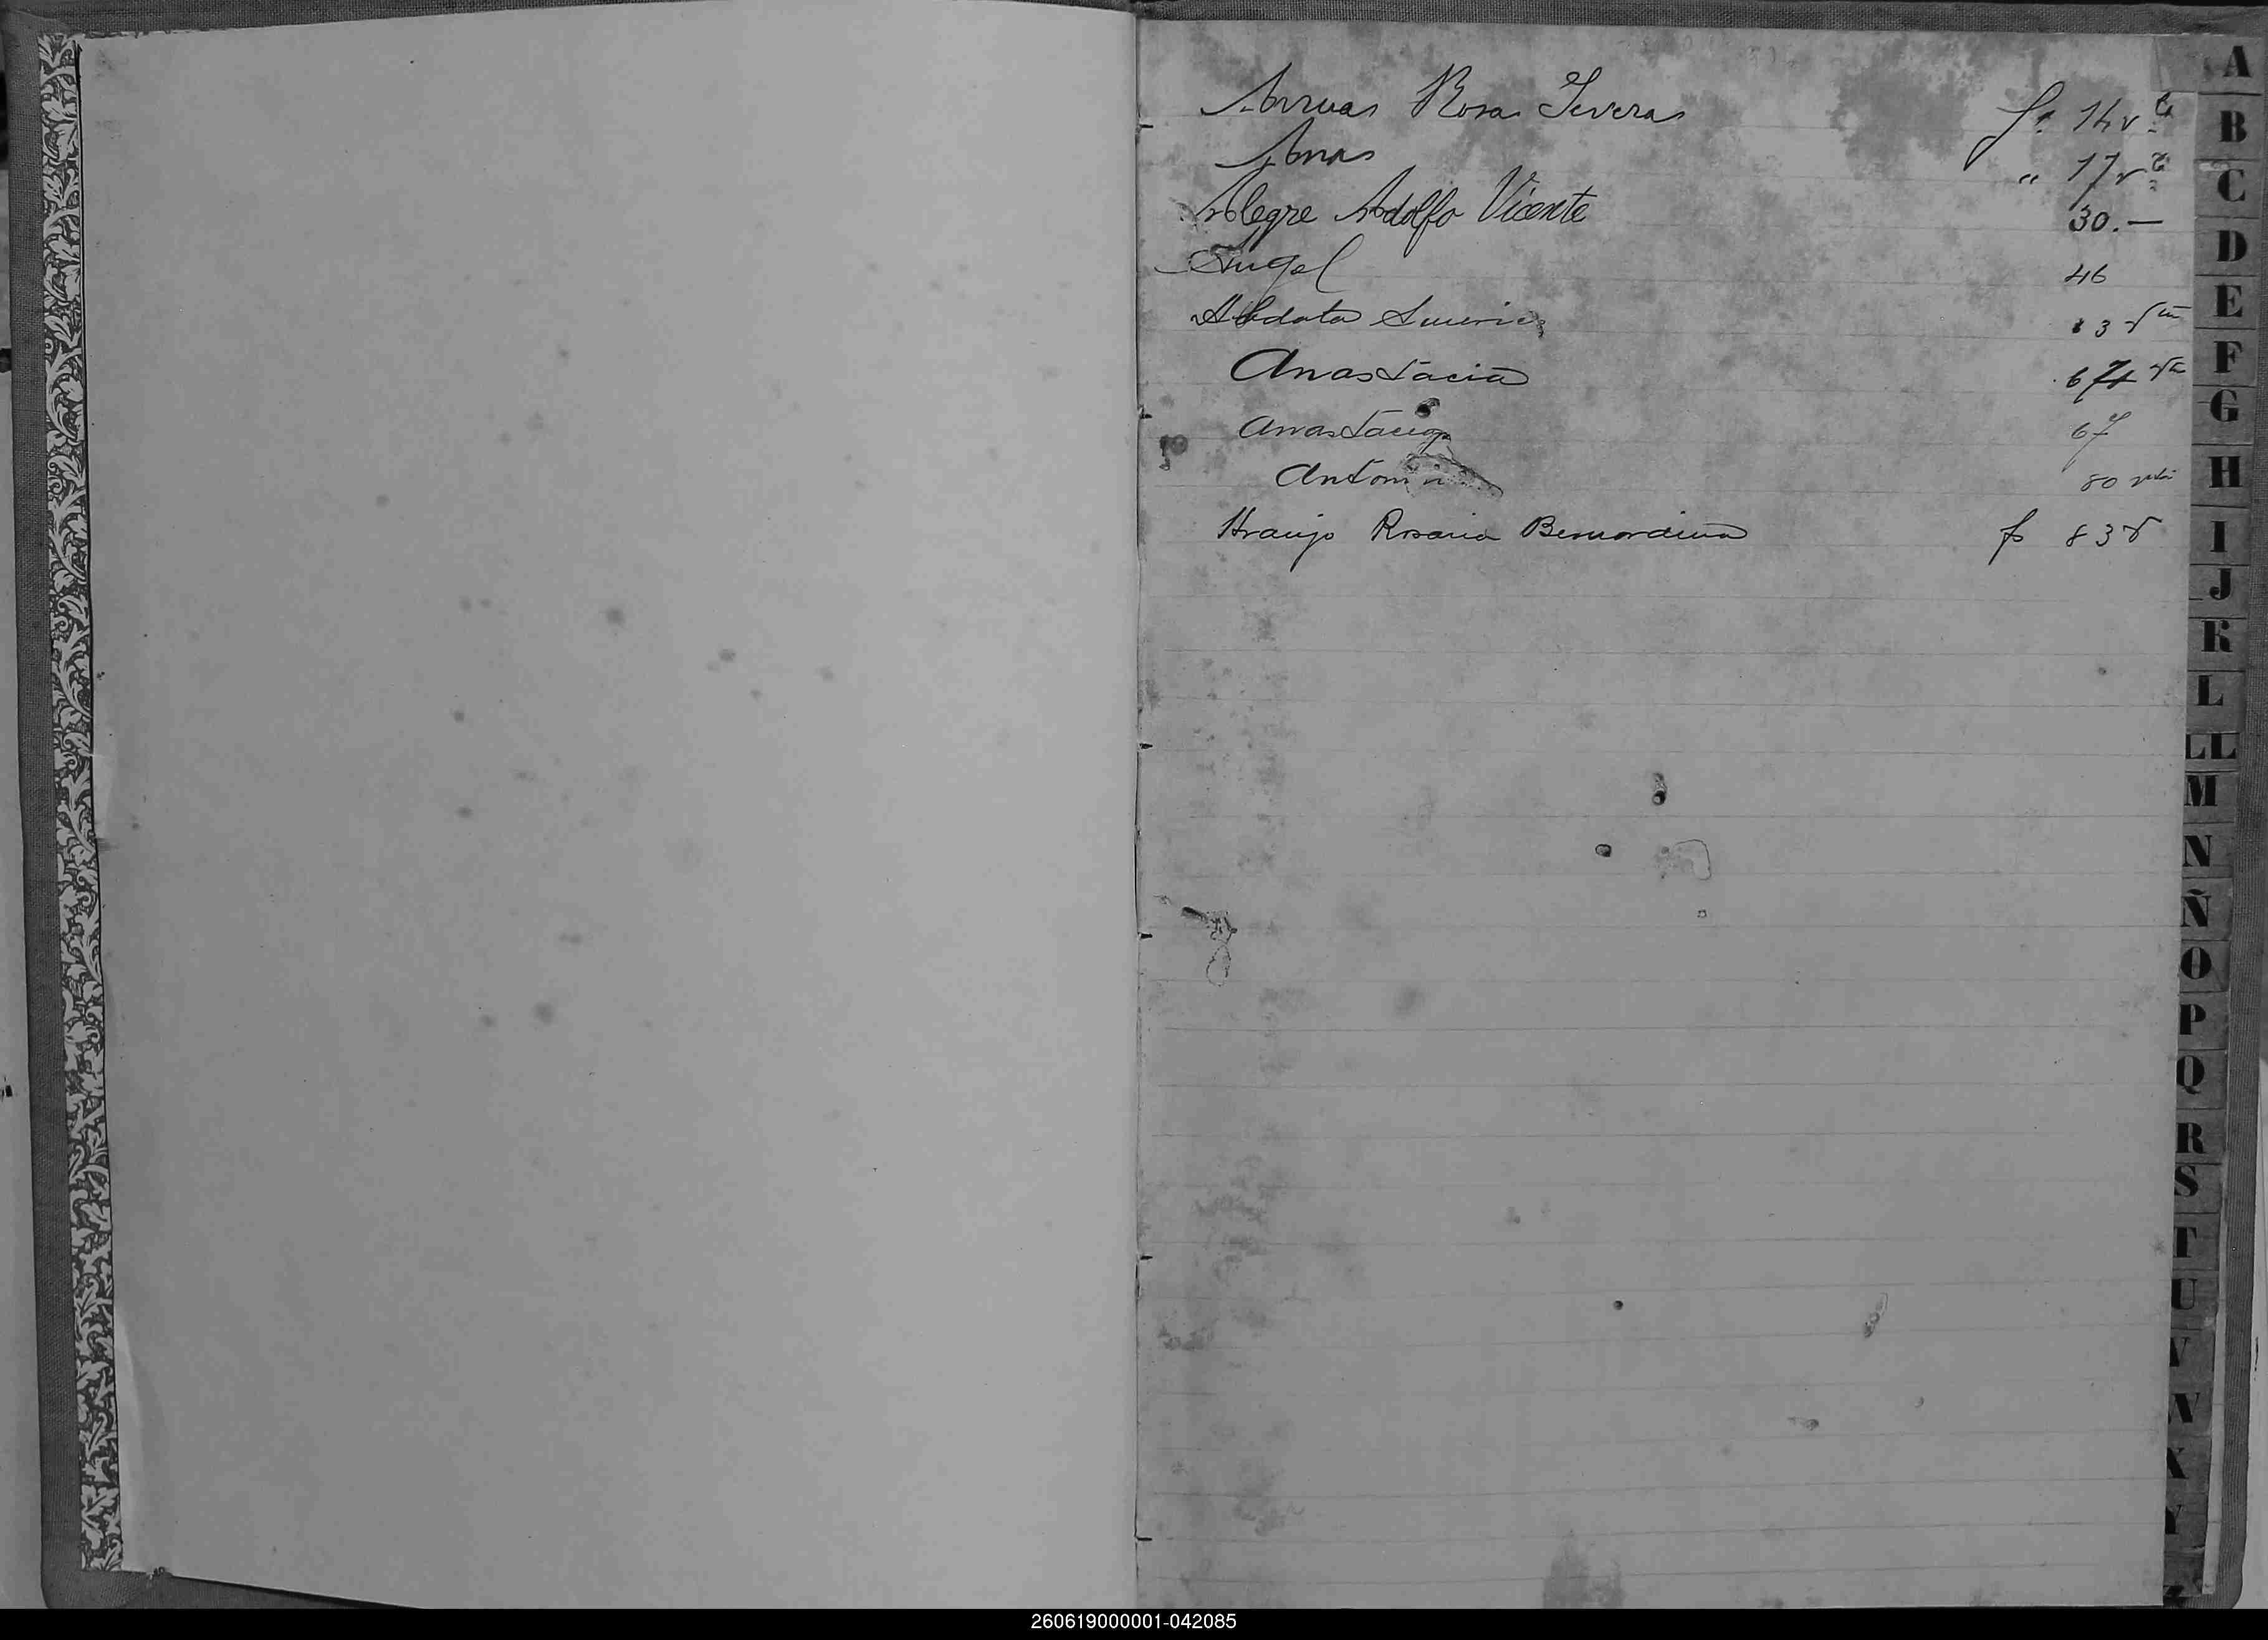 Arruas Rosa Severa fs. 14 vta
Ana " 17 vta
Alegre Adolfo Vicente 30.—
Angel 46
Anastacia 67 vta
Anastacia 67
Antonia 80 vta
Araujo Rosaria Bernardina fs 83 v
A
B
C
D
E
F
G
H
I
J
K
L
LL
M
N
Ñ
O
P
Q
R
S
T
U
V
X
Y
260619000001-042085